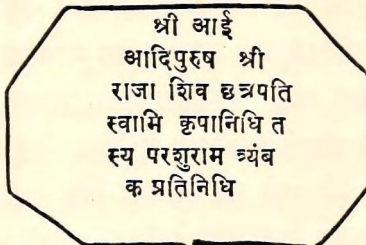 श्री आई
आदिपुरुष श्री
राजा शिव छत्रपति
स्वामि कृपानिधि त
स्य परशुराम त्र्यंब
क प्रतिनिधि